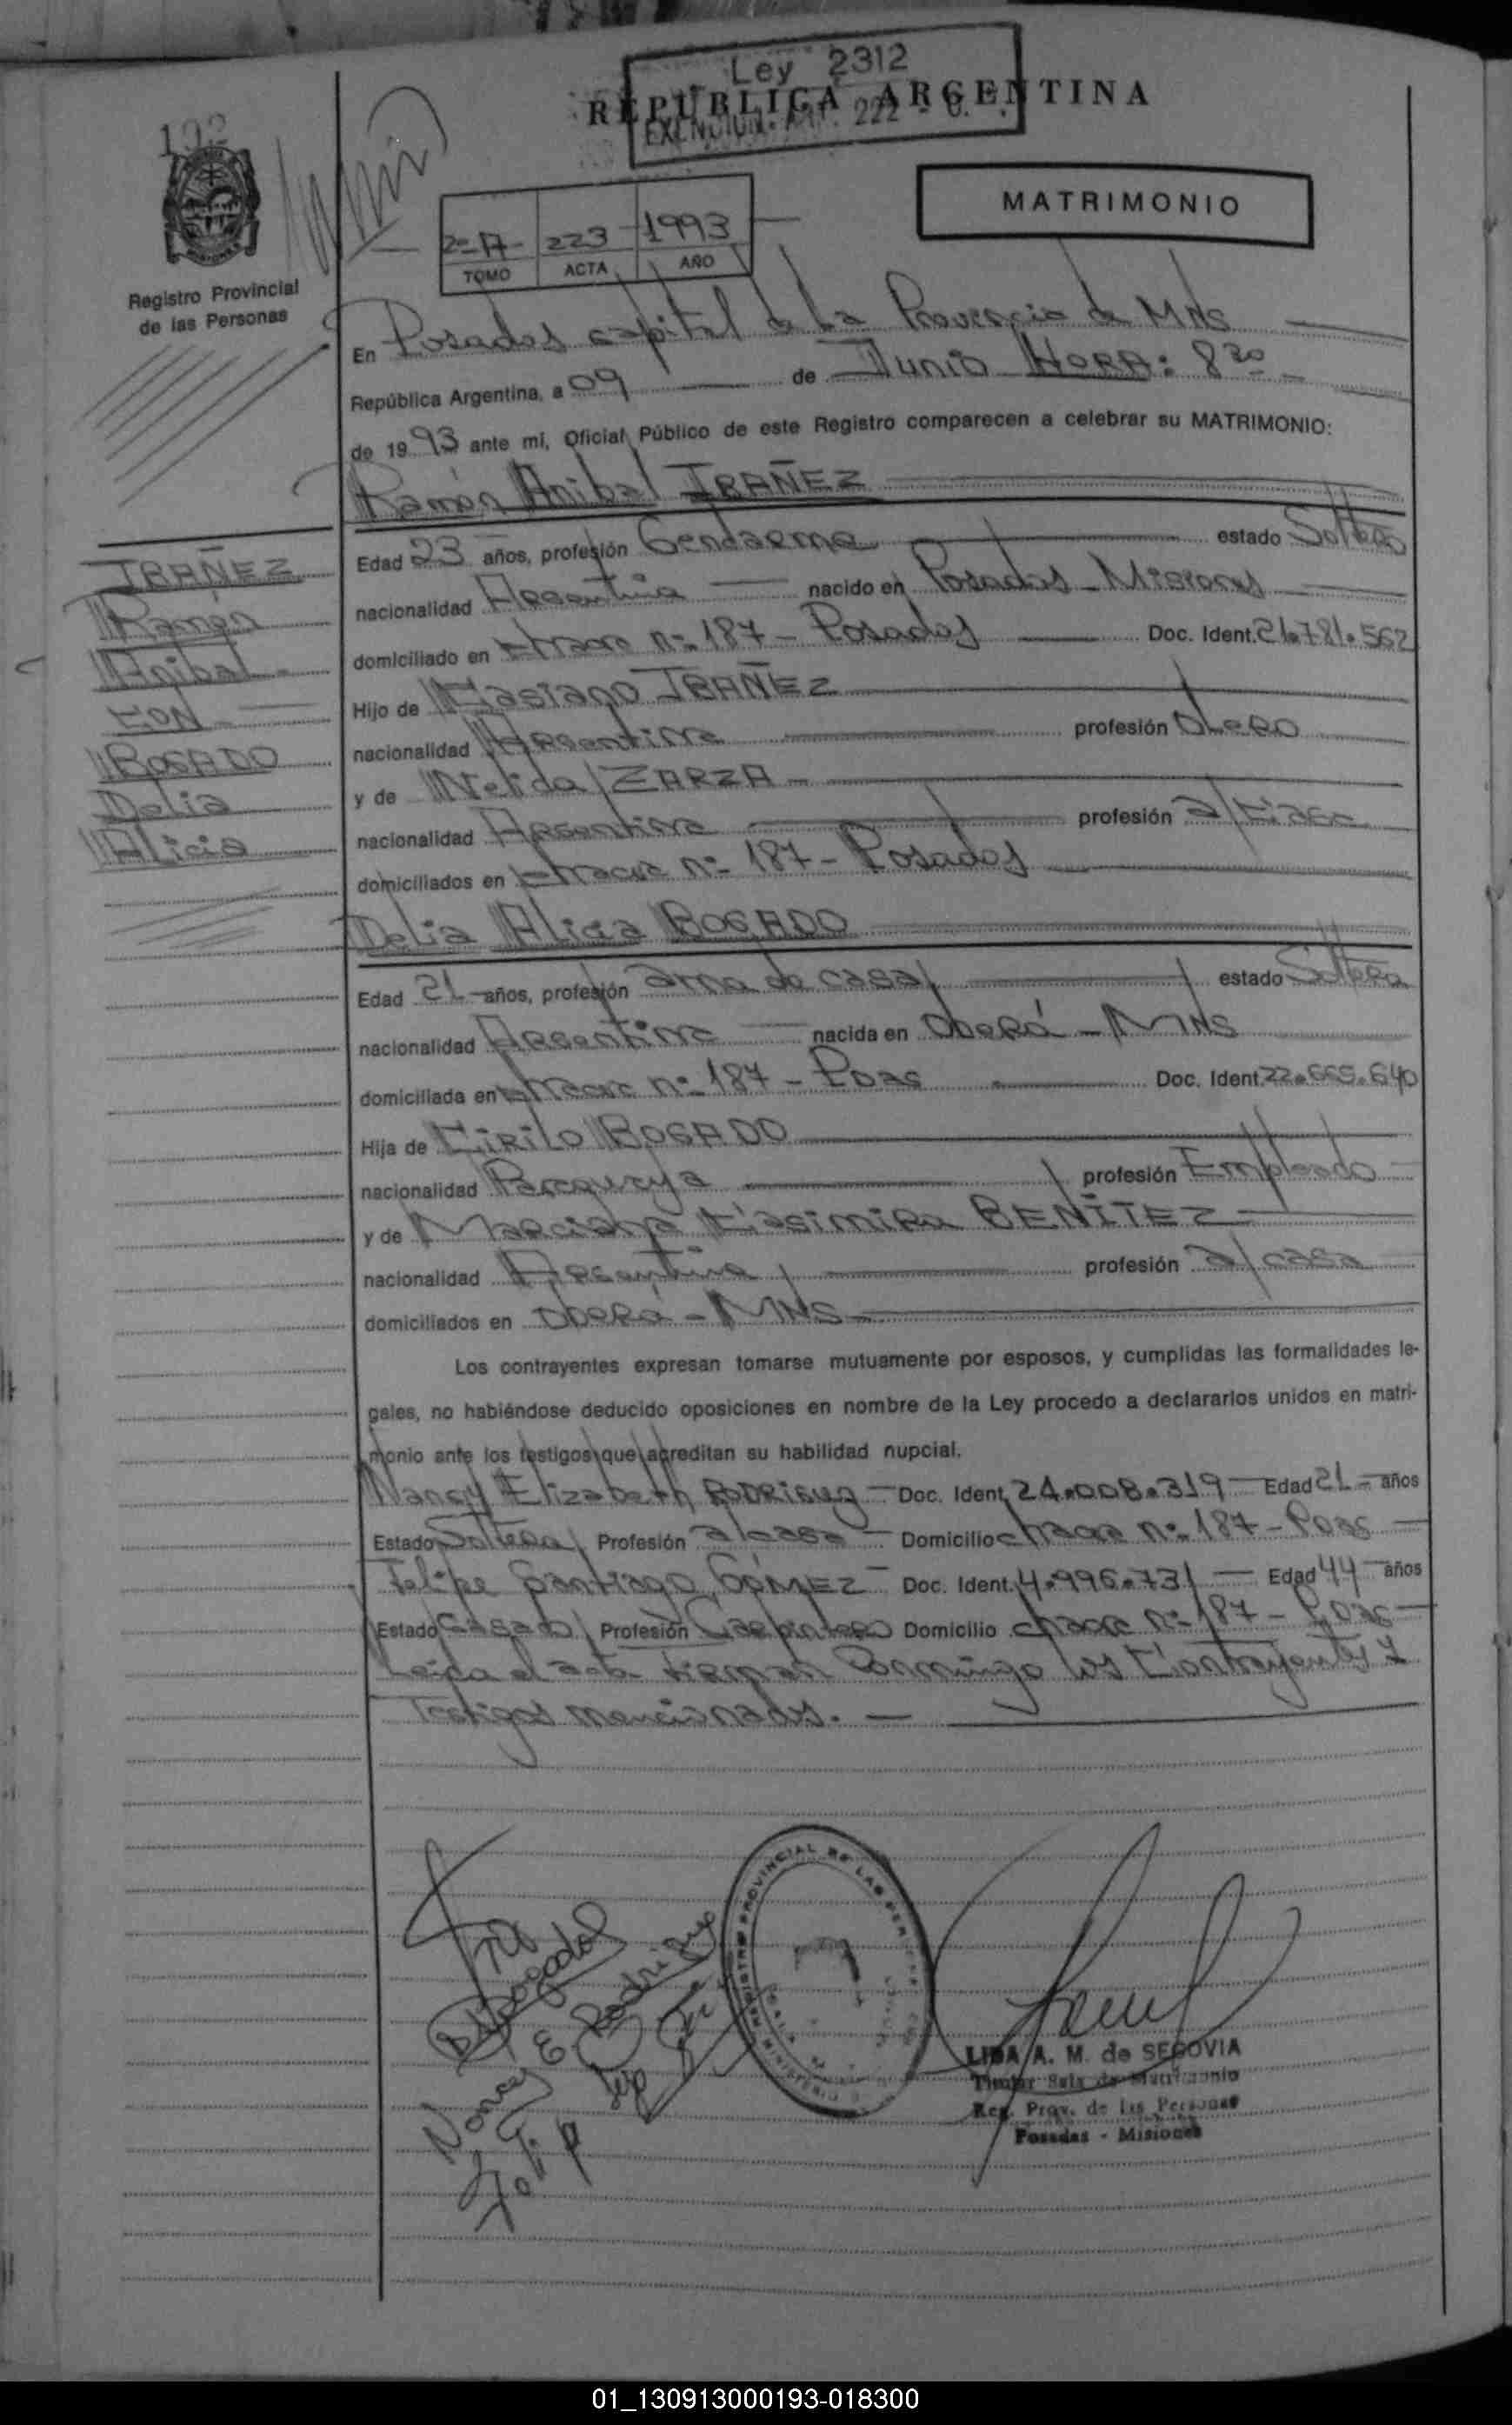 192
Ley 2312
REPUBLICA ARGENTINA
EXENCION: Art. 222 -
MATRIMONIO
2º A - 223 - 1993
TOMO ACTA AÑO
Registro Provincial
de las Personas
En Posadas capital de la Provincia de MNS
República Argentina, a 09 de Junio HORA: 8 30
de 1993 ante mi, Oficial Público de este Registro comparecen a celebrar su MATRIMONIO:
Ramón Anibal IBAÑEZ
IBAÑEZ
Ramón
Anibal
CON
BOGADO
Delia
Alicia
Edad 23 años, profesión Gendarme estado Soltero
nacionalidad Argentina nacido en Posadas - Misiones
domiciliado en chacra nº 187 - Posadas Doc. Ident. 21.781.562
Hijo de Casiano IBAÑEZ
nacionalidad Argentina profesión Olero
y de Nelida ZARZA
nacionalidad Argentina profesión a/casa
domiciliados en chacra nº 187 - Posadas
Delia Alicia BOGADO
Edad 21 años, profesión ama de casa estado Soltera
nacionalidad Argentina nacida en Oberá - MNS
domiciliada en chacra nº 187 - Pdas Doc. Ident. 22.665.640
Hija de Cirilo BOGADO
nacionalidad Paraguaya profesión Empleado
y de Marciana Casimira BENÍTEZ
nacionalidad Argentina profesión a/casa
domiciliados en Oberá - MNS
Los contrayentes expresan tomarse mutuamente por esposos, y cumplidas las formalidades le-
gales, no habiéndose deducido oposiciones en nombre de la Ley procedo a declararlos unidos en matri-
monio ante los testigos que acreditan su habilidad nupcial.
Nancy Elizabeth RODRIGUEZ Doc. Ident. 24.008.319 Edad 21 años
Estado Soltera Profesión a/casa Domicilio chacra nº 187 - Pdas
Felipe Santiago GÓMEZ Doc. Ident. 4.996.731 Edad 44 años
Estado Casado Profesión Carpintero Domicilio chacra nº 187 - Pdas
Leída el acta firman conmigo los Contrayentes y
Testigos mencionados.
D A Bogado
Nancy E Rodrigue
REGISTRO PROVINCIAL DE LAS PERSONAS
MINISTERIO
LIDA A. M. de SEGOVIA
Titular Sala de Matrimonio
Reg. Prov. de las Personas
Posadas - Misiones
01_130913000193-018300